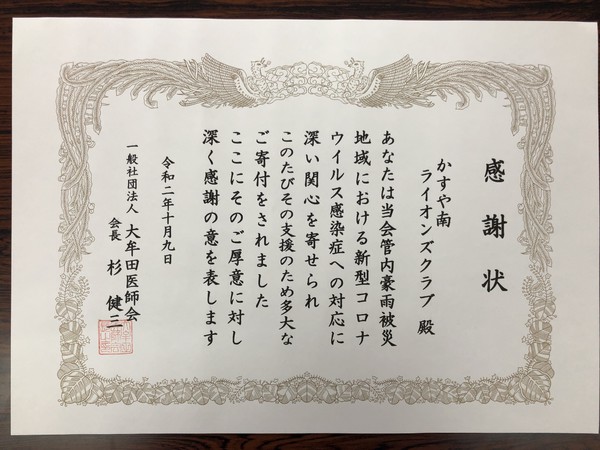 感謝状
かすや南
ライオンズクラブ 殿
あなたは当会管内豪雨被災
地域における新型コロナ
ウイルス感染症への対応に
深い関心を寄せられ
このたびその支援のため多大な
ご寄付をされました
ここにそのご厚意に対し
深く感謝の意を表します
令和二年十月九日
一般社団法人 大牟田医師会
会長 杉 健三